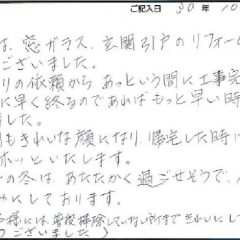 ご記入日 30年 10
は、窓ガラス、玄関引戸のリフォーム
ございました。
りの依頼から あっという間に工事完
に早く終るのであればもっと早い時
ました。
もきれいな顔になり、帰宅した時に
ホッといたします。
の冬は、あたたかく過ごせそうで、
みにしております。
様には、普段掃除していない所まできれいにして
うございました）